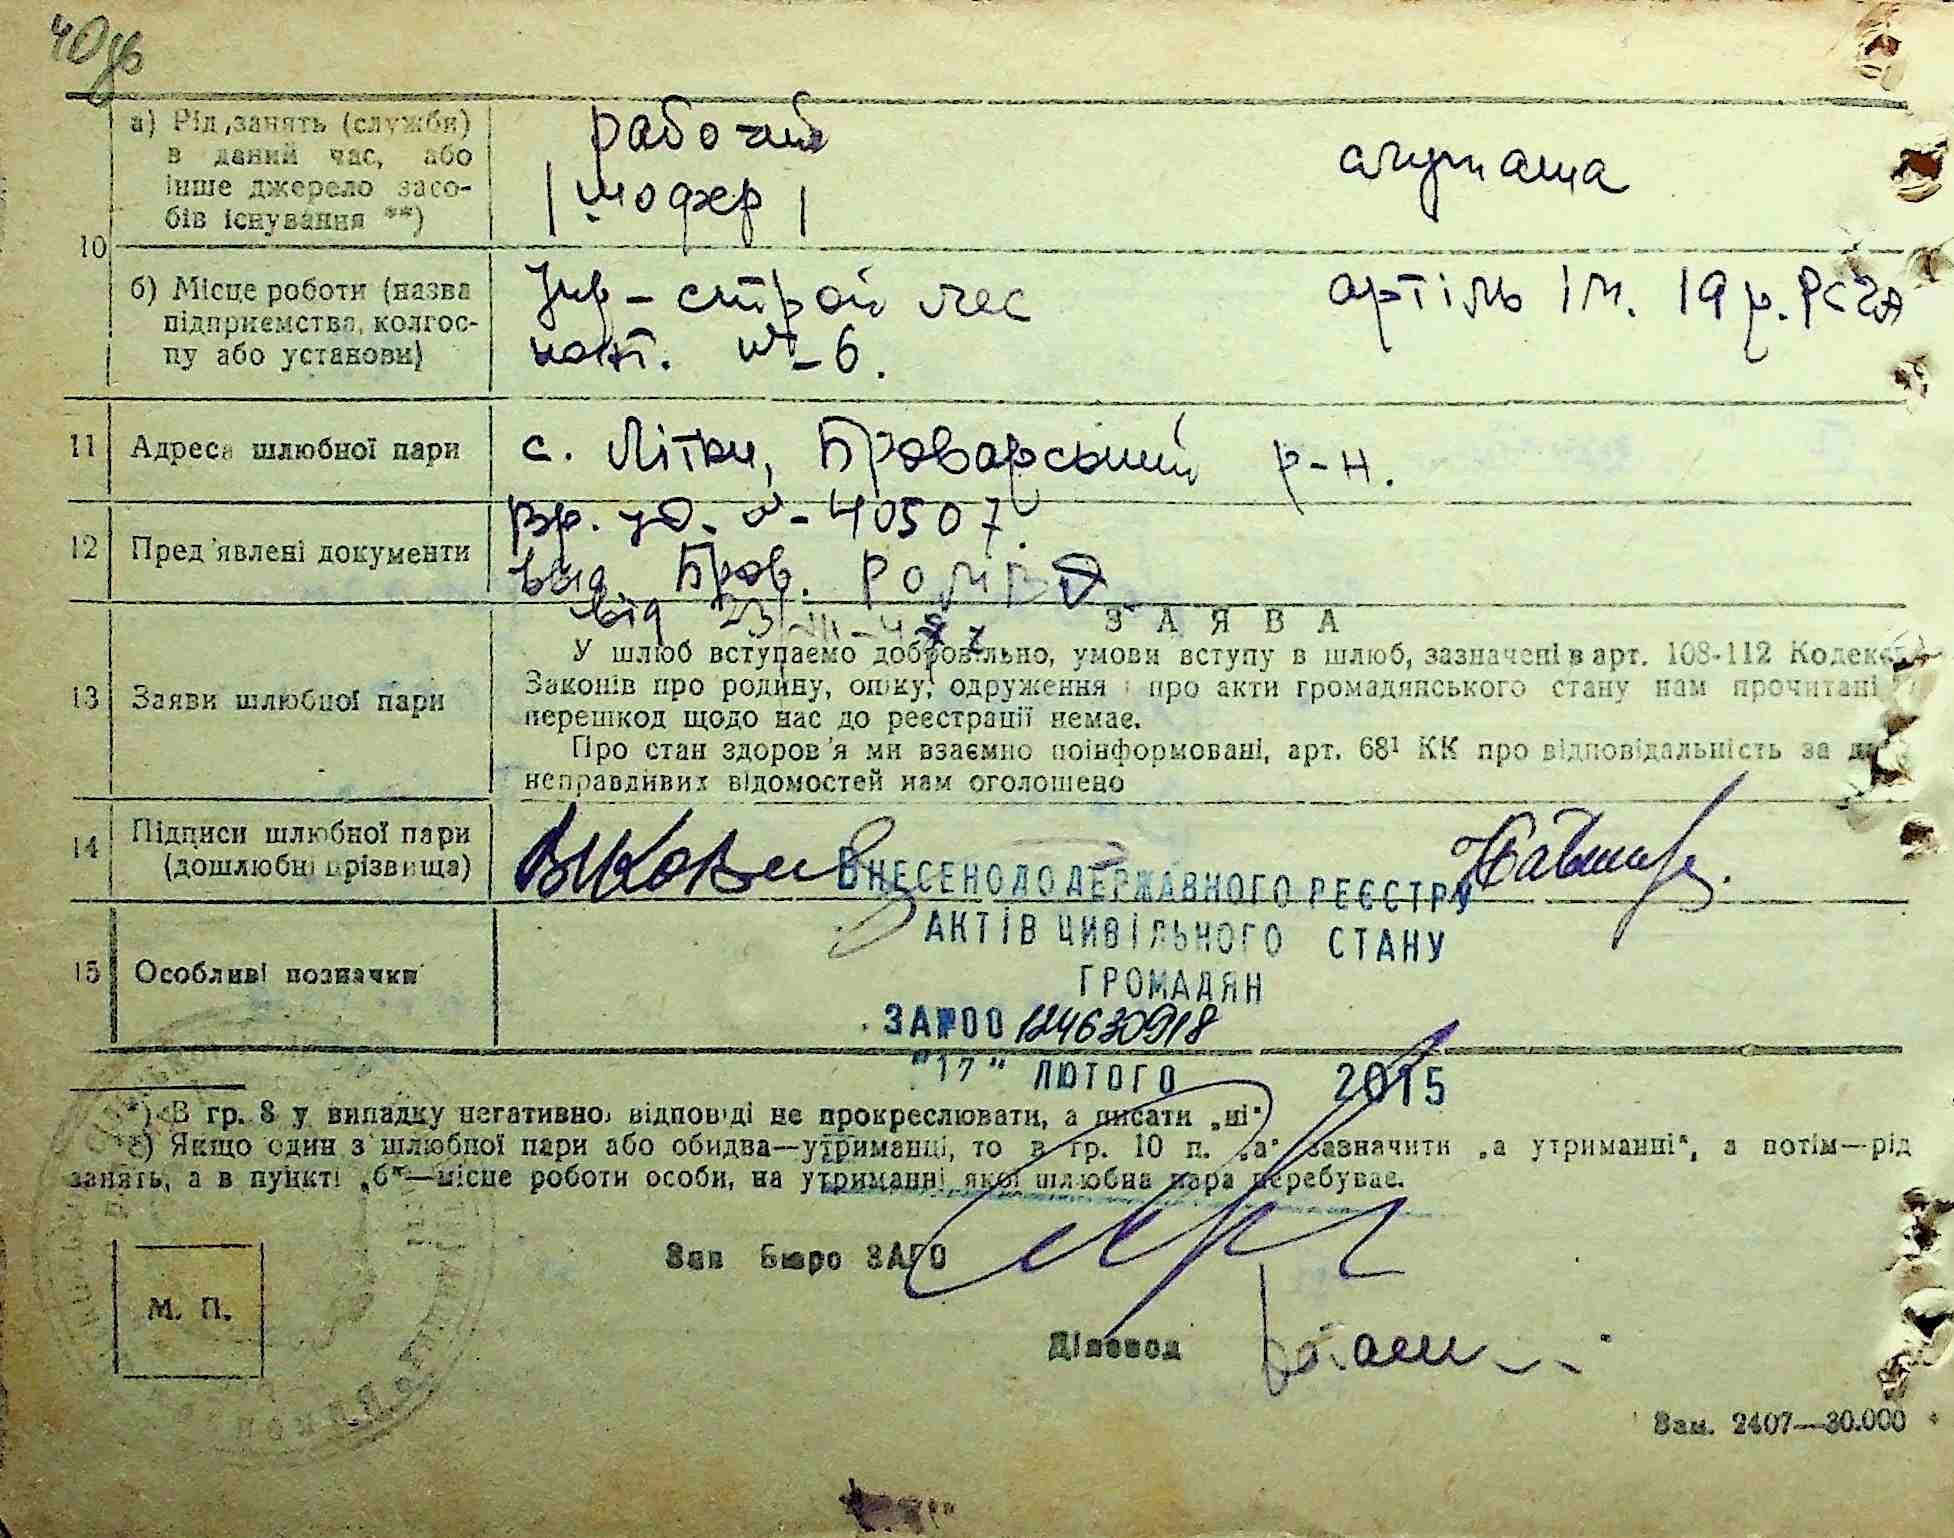 40
а) Рід занять (служби) в даний час, або інше джерело засобів існування **)
рабочий
| шофер |
служаща
10
б) Місце роботи (назва підприємства, колгоспу або установи)
Укр-строй лес
конт. №-6.
артіль ім. 19 р. РСЧА
11 Адреса шлюбної пари
с. Літки, Броварський р-н.
12 Пред'явлені документи
Вр. уд. №-40507.
вид. Бров. РОМВД
від 23/
13 Заяви шлюбної пари
ЗАЯВА
У шлюб вступаємо добровільно, умови вступу в шлюб, зазначені в арт. 108-112 Кодекса
Законів про родину, опіку, одруження і про акти громадянського стану нам прочитані
перешкод щодо нас до реєстрації немає.
Про стан здоров'я ми взаємно поінформовані, арт. 68¹ КК про відповідальність за
неправдивих відомостей нам оголошено
14 Підписи шлюбної пари (дошлюбні прізвища)
ВНЕСЕНО ДО ДЕРЖАВНОГО РЕЄСТРУ
АКТІВ ЦИВІЛЬНОГО СТАНУ
ГРОМАДЯН
15 Особливі позначки
ЗА №00 124630918
"17" ЛЮТОГО 2015
*) В гр. 8 у випадку негативної відповіді не прокреслювати, а писати „ні"
Якщо один з шлюбної пари або обидва—утриманці, то в гр. 10 п. „а" зазначити „а утриманні", а потім—рід
занять, а в пункті „б"—місце роботи особи, на утриманні якої шлюбна пара перебуває.
Зав Бюро ЗАГС
М. П.
Діловод
Зам. 2407—30.000